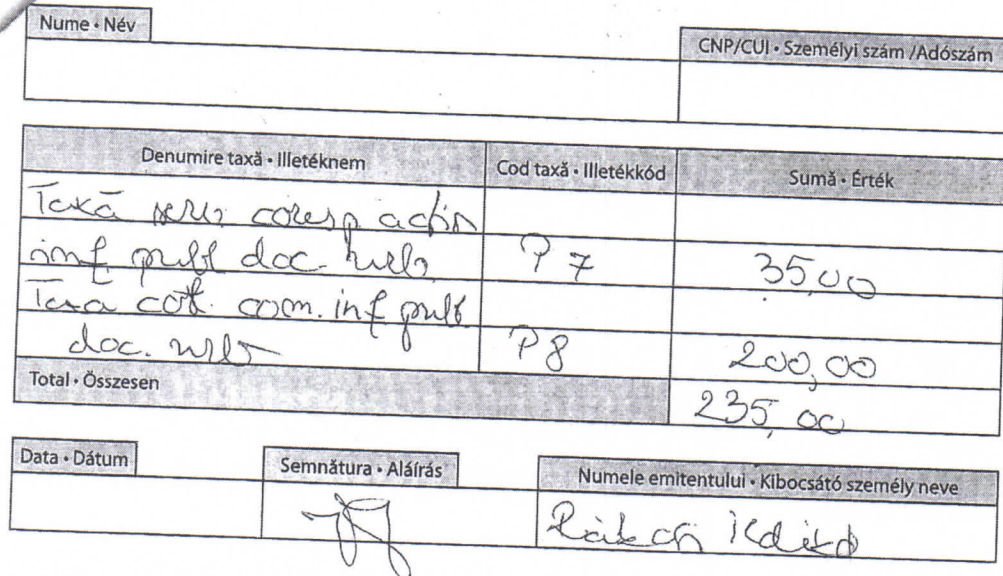 Nume • Név
CNP/CUI • Személyi szám /Adószám
Denumire taxă • Illetéknem Cod taxă • Illetékkód Sumă • Érték
Taxă coresp.
inf publ doc. P7 35,00
Taxa com. inf publ
doc. P8 200,00
Total • Összesen 235,00
Data • Dátum Semnătura • Aláírás Numele emitentului • Kibocsátó személy neve